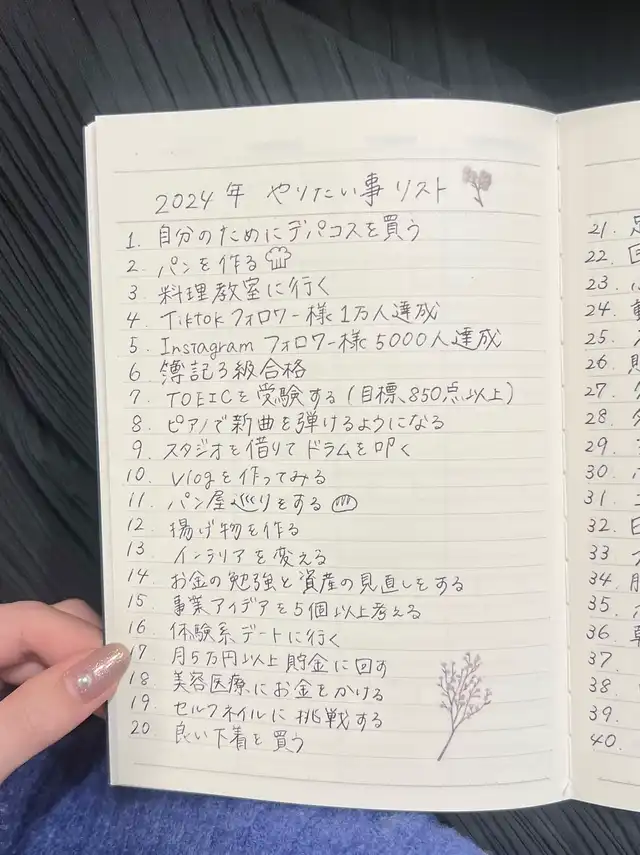 2024年 やりたい事リスト
1. 自分のためにデパコスを買う
2. パンを作る
3. 料理教室に行く
4. Tiktokフォロワー様1万人達成
5. Instagramフォロワー様5000人達成
6. 簿記3級合格
7. TOEICを受験する(目標、850点以上)
8. ピアノで新曲を弾けるようになる
9. スタジオを借りてドラムを叩く
10. Vlogを作ってみる
11. パン屋巡りをする
12. 揚げ物を作る
13. インテリアを変える
14. お金の勉強と資産の見直しをする
15. 事業アイデアを5個以上考える
16. 体験系デートに行く
17. 月5万円以上貯金に回す
18. 美容医療にお金をかける
19. セルフネイルに挑戦する
20. 良い下着を買う
21.
22.
23.
24.
25.
26.
27.
28.
29.
30.
31.
32.
33
34.
35.
36.
37.
38.
39.
40.